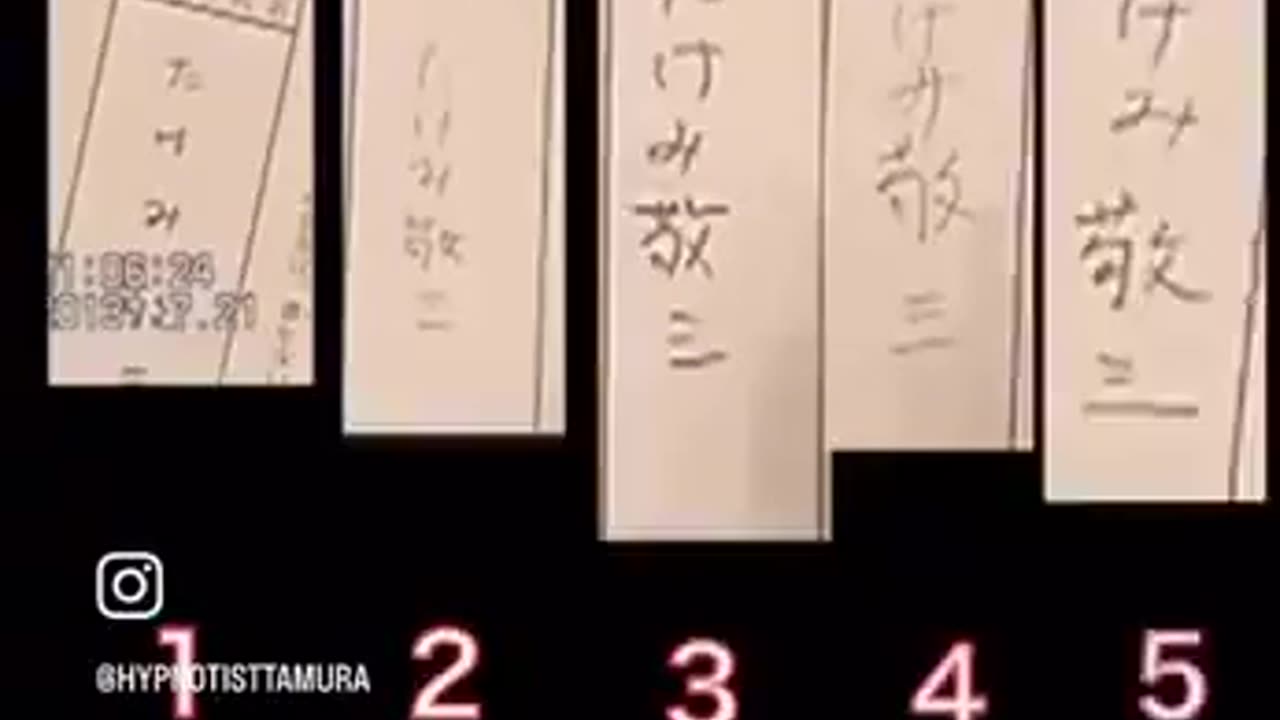 たけみ
1:06:24
けみ敬三
たけみ敬三
けみ敬三
けみ敬三
@HYPNOTISTTAMURA
1
2
3
4
5